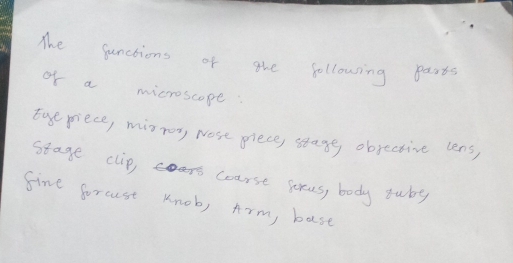 The functions of the following parts
of a microscope:
Eye piece, mirror, Nose piece, stage, objective lens,
Stage clip, Coarse focus, body tube,
fine forcuse Knob, Arm, base